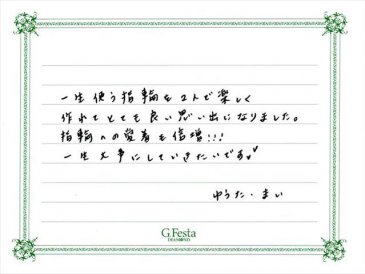 一生使う指輪を2人で楽しく
作れてとても良い思い出になりました。
指輪への愛着も倍増!!!
一生大事にしていきたいです♥
ゆうた・まい
G.Festa
DIAMOND